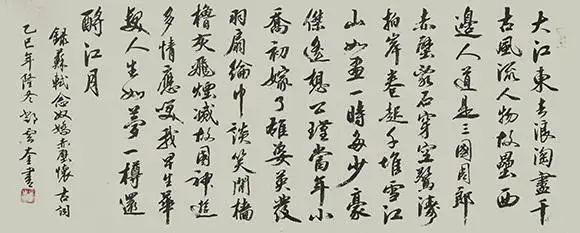 大江東去浪淘盡千
古風流人物故壘西
邊人道是三國周郎
赤壁亂石穿空驚濤
拍岸卷起千堆雪江
山如畫一時多少豪
傑遙想公瑾當年小
喬初嫁了雄姿英發
羽扇綸巾談笑間檣
櫓灰飛煙滅故國神遊
多情應笑我早生華
髮人生如夢一樽還
酹江月
錄蘇軾念奴嬌赤壁懷古詞
乙巳年隆冬雲奎書